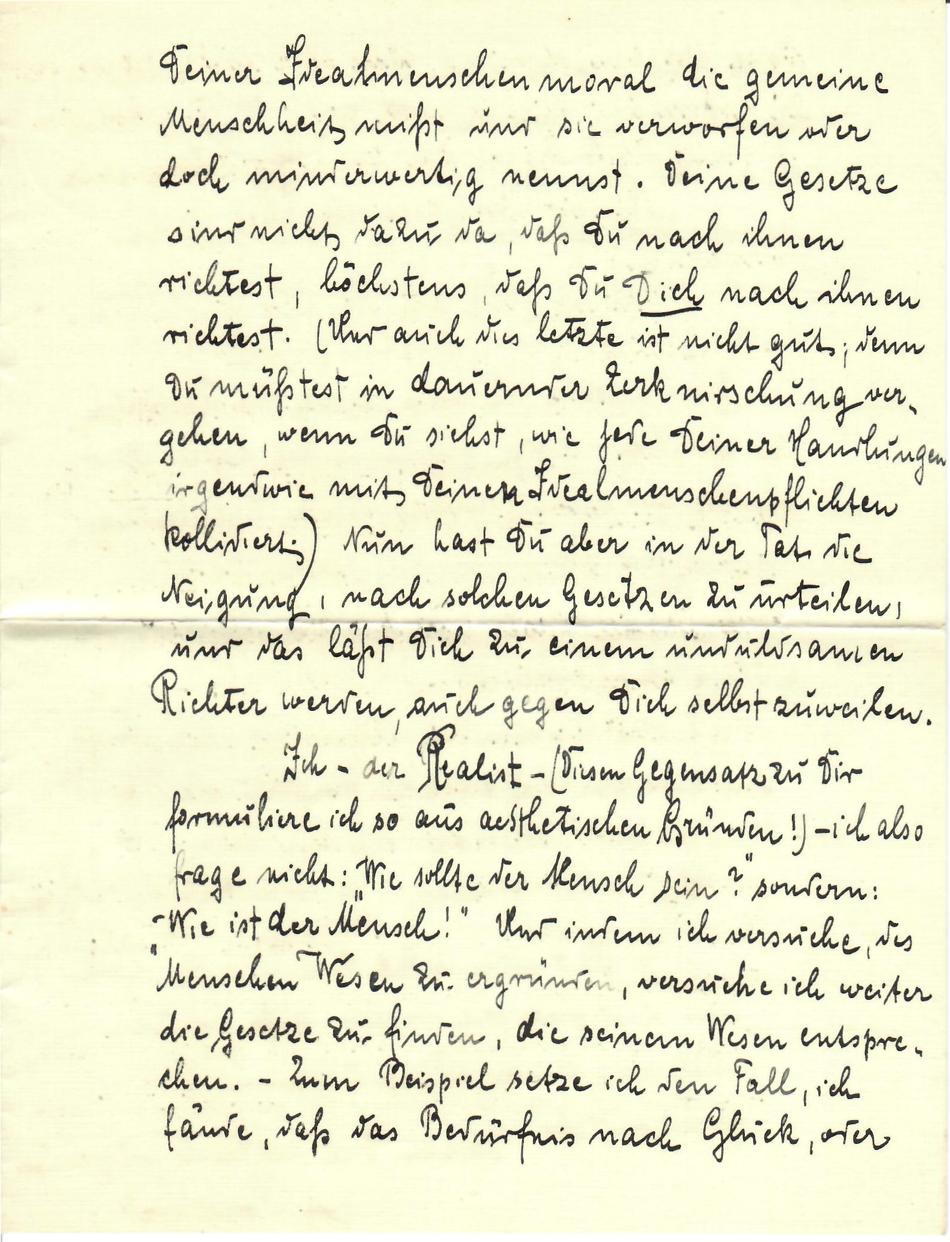 Deiner Idealmenschenmoral die gemeine
Menschheit mißt und sie verworfen oder
doch minderwertig nennst. Deine Gesetze
sind nicht dazu da, daß Du nach ihnen
richtest, höchstens, daß Du Dich nach ihnen
richtest. (Und auch dies letzte ist nicht gut; denn
Du müßtest in dauernder Zerknirschung ver-
gehen, wenn Du siehst, wie jede Deiner Handlungen
irgendwie mit Deinen Idealmenschenpflichten
kollidiert.) Nun hast Du aber in der Tat die
Neigung, nach solchen Gesetzen zu urteilen,
und das läßt Dich zu einem unduldsamen
Richter werden, auch gegen Dich selbst zuweilen.
Ich – der Realist – (Diesen Gegensatz zu Dir
formuliere ich so aus aesthetischen Gründen!) – ich also
frage nicht: "Wie sollte der Mensch sein?" sondern:
"Wie ist der Mensch!" Und indem ich versuche, des
Menschen Wesen zu ergründen, versuche ich weiter
die Gesetze zu finden, die seinem Wesen entspre-
chen. – Zum Beispiel setze ich den Fall, ich
fände, daß das Bedürfnis nach Glück, oder